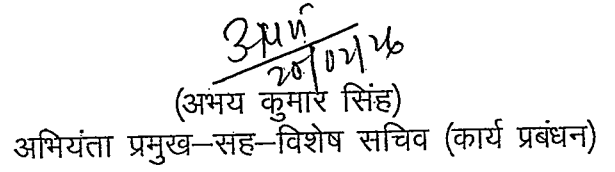 अभय
20/02/26
(अभय कुमार सिंह)
अभियंता प्रमुख–सह–विशेष सचिव (कार्य प्रबंधन)